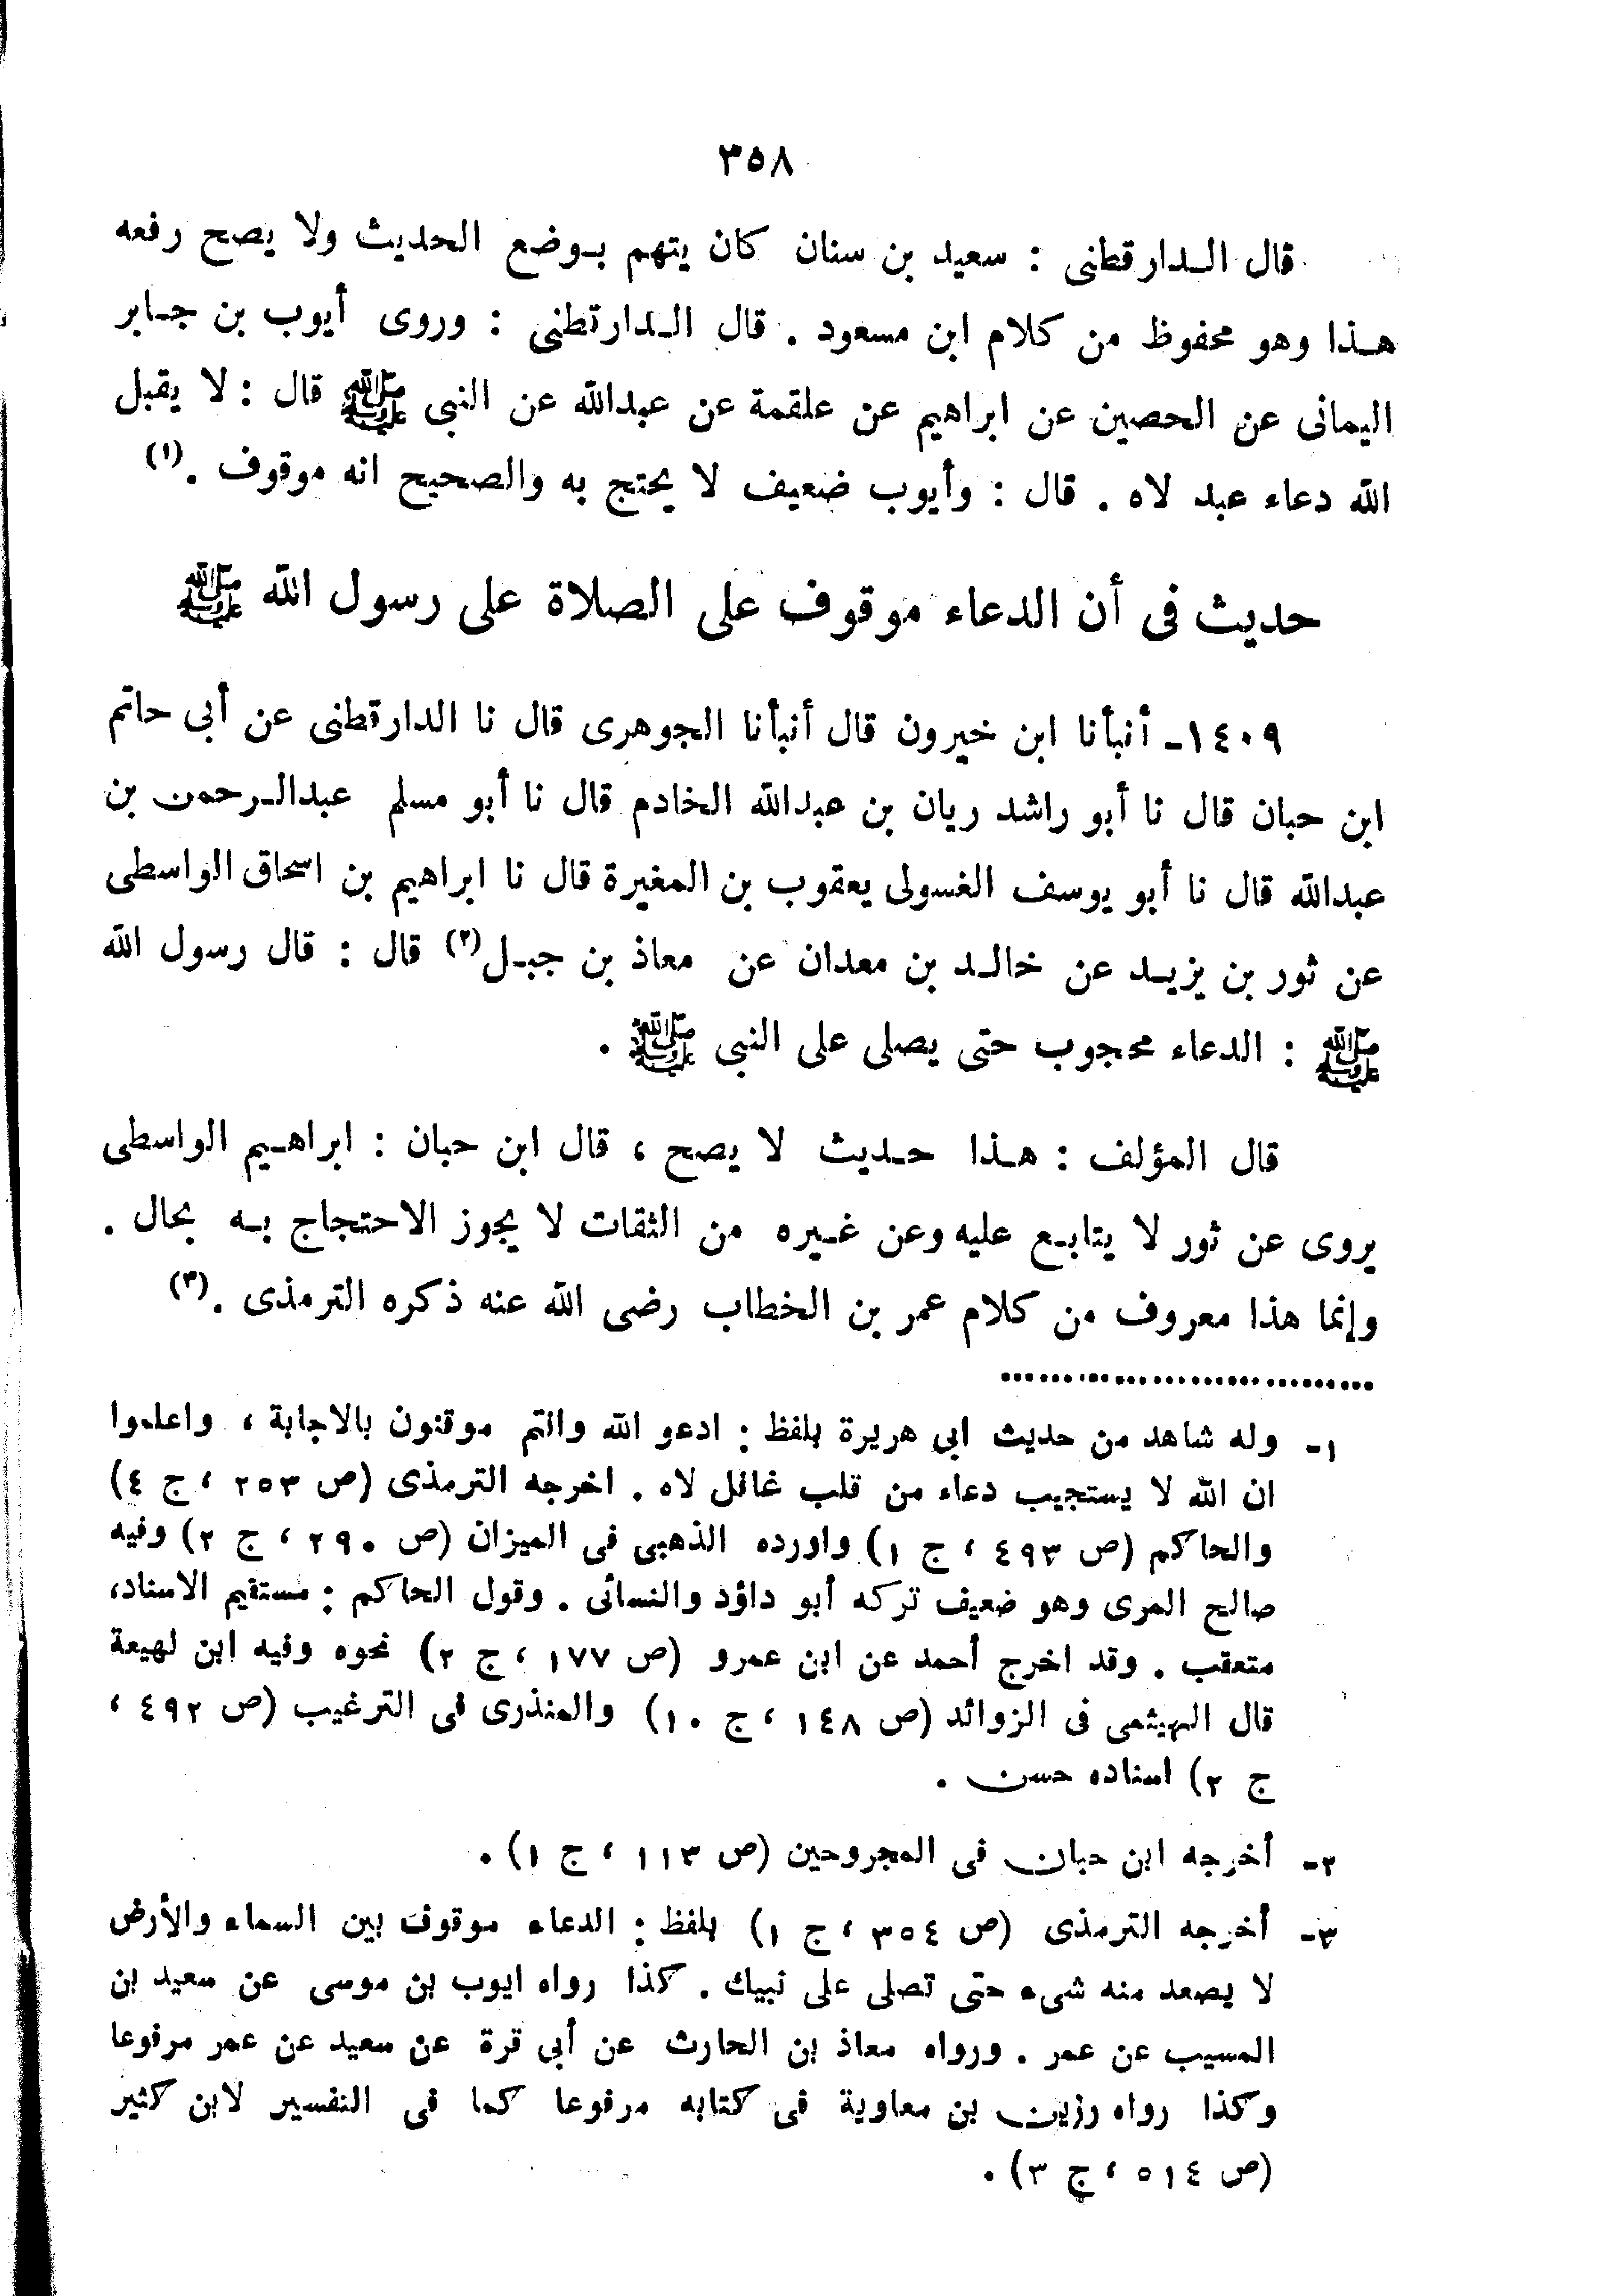 ٣٥٨
قال الدارقطنى : سعيد بن سنان كان يتهم بوضع الحديث ولا يصح رفعه
هذا وهو محفوظ من كلام ابن مسعود . قال الدارقطنى : وروى أيوب بن جابر
اليمانى عن الحصين عن ابراهيم عن علقمة عن عبدالله عن النبى ﷺ قال : لا يقبل
الله دعاء عبد لاه . قال : وأيوب ضعيف لا يحتج به والصحيح انه موقوف .(١)
حديث فى أن الدعاء موقوف على الصلاة على رسول الله ﷺ
١٤٠٩ـ أنبأنا ابن خيرون قال أنبأنا الجوهرى قال نا الدارقطنى عن أبى حاتم
ابن حبان قال نا أبو راشد ريان بن عبدالله الخادم قال نا أبو مسلم عبدالرحمن بن
عبدالله قال نا أبو يوسف الغسولى يعقوب بن المغيرة قال نا ابراهيم بن اسحاق الواسطى
عن ثور بن يزيد عن خالد بن معدان عن معاذ بن جبل(٢) قال : قال رسول الله
ﷺ : الدعاء محجوب حتى يصلى على النبى ﷺ .
قال المؤلف : هذا حديث لا يصح ، قال ابن حبان : ابراهيم الواسطى
يروى عن ثور لا يتابع عليه وعن غيره من الثقات لا يجوز الاحتجاج به بحال .
وإنما هذا معروف من كلام عمر بن الخطاب رضى الله عنه ذكره الترمذى .(٣)
..............................
١ـ وله شاهد من حديث ابى هريرة بلفظ : ادعو الله وانتم موقنون بالاجابة ، واعلموا
ان الله لا يستجيب دعاء من قلب غافل لاه . اخرجه الترمذى (ص ٢٥٣ ، ج ٤)
والحاكم (ص ٤٩٣ ، ج ١) واورده الذهبى فى الميزان (ص ٢٩٠ ، ج ٢) وفيه
صالح المرى وهو ضعيف تركه أبو داؤد والنسائى . وقول الحاكم : مستقيم الاسناد،
متعقب . وقد اخرج أحمد عن ابن عمرو (ص ١٧٧ ، ج ٢) نحوه وفيه ابن لهيعة
قال الهيثمى فى الزوائد (ص ١٤٨ ، ج ١٠) والمنذرى فى الترغيب (ص ٤٩٢ ،
ج ٢) اسناده حسن .
٢ـ أخرجه ابن حبان فى المجروحين (ص ١١٣ ، ج ١) .
٣ـ أخرجه الترمذى (ص ٣٥٤ ، ج ١) بلفظ : الدعاء موقوف بين السماء والأرض
لا يصعد منه شىء حتى تصلى على نبيك . كذا رواه ايوب بن موسى عن سعيد بن
المسيب عن عمر . ورواه معاذ بن الحارث عن أبى قرة عن سعيد عن عمر مرفوعا
وكذا رواه رزين بن معاوية فى كتابه مرفوعا كما فى التفسير لابن كثير
(ص ٥١٤ ، ج ٣) .